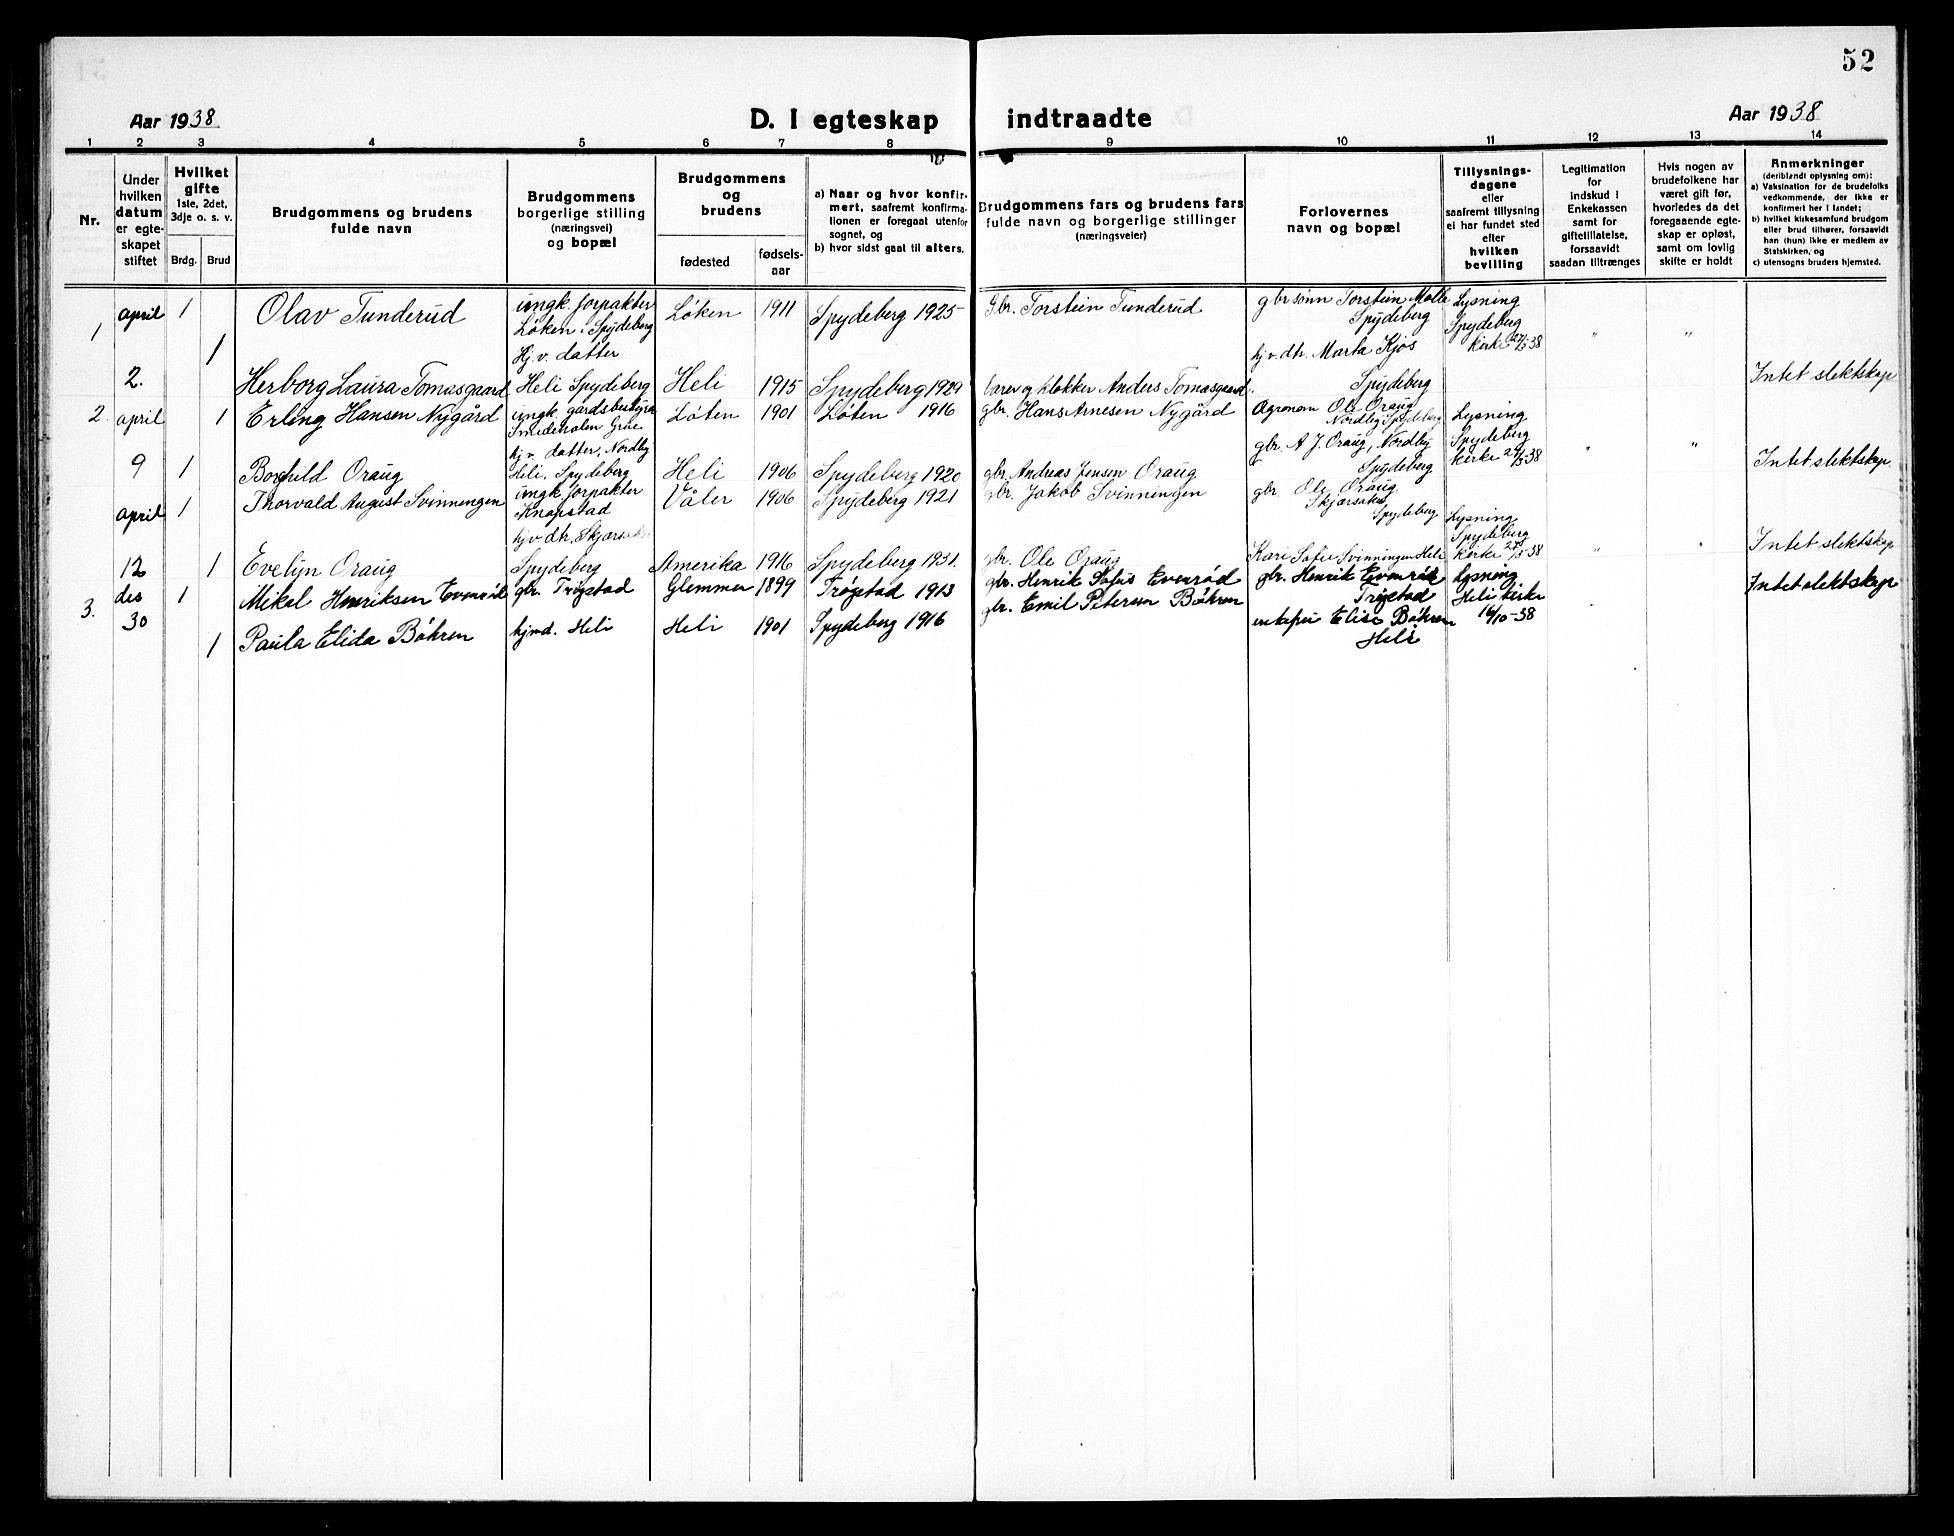 52
Aar 1938
D. I egteskap indtraadte
Aar 1938
1 2 3 4 5 6 7 8 9 10 11 12 13 14
Nr.
Under hvilken datum er egte-skapet stiftet
Hvilket gifte 1ste, 2det, 3dje o. s. v.
Brdg. Brud
Brudgommens og brudens fulde navn
Brudgommens borgerlige stilling (næringsvei) og bopæl
Brudgommens og brudens
fødested
fødsels-aar
a) Naar og hvor konfir-mert, saafremt konfirma-tionen er foregaat utenfor sognet, og
b) hvor sidst gaat til alters.
Brudgommens fars og brudens fars fulde navn og borgerlige stillinger (næringsveier)
Forlovernes navn og bopæl
Tillysnings-dagene eller saafremt tillysning ei har fundet sted efter hvilken bevilling
Legitimation for indskud i Enkekassen samt for giftetillatelse, forsaavidt saadan tiltrænges
Hvis nogen av brudefolkene har været gift før, hvorledes da det foregaaende egte-skap er opløst, samt om lovlig skifte er holdt
Anmerkninger (deriblendt oplysning om):
a) Vaksination for de brudefolks vedkommende, der ikke er konfirmert her i landet;
b) hvilket kirkesamfund brudgom eller brud tilhører, forsaavidt han (hun) ikke er medlem av Statskirken, og
c) utensogns bruders hjemsted.
1 april 2. 1 Olav Tunderud ungk. forpakter Løken i Spydeberg Løken 1911 Spydeberg 1925 Gbr. Torstein Tunderud gbr sønn Torstein Molle Spydeberg Lysning Spydeberg kirke 27/3-38 " "
1 Herborg Laura Tomasgaard Hj.v. datter Heli Spydeberg Heli 1915 Spydeberg 1929 lærer og klokker Anders Tomasgaard hj v. dtr. Marta Kjos Spydeberg Intet slektskap
2. april 9 1 Erling Hansen Nygård ungk. gardsbestyrer Grue Løten 1901 Løten 1916 gbr. Hans Arnesen Nygård Agronom Ole Oraug Nordby Spydeberg Lysning Spydeberg kirke 27/3-38 " "
1 Borghild Oraug hj v. datter, Nordby Heli, Spydeberg Heli 1906 Spydeberg 1920 gbr. Andreas Jensen Oraug gbr. A. J. Oraug, Nordby Spydeberg Intet slektskap
april 12 1 Thorvald August Svinningen ungk. forpakter Knapstad Våler 1906 Spydeberg 1921 gbr. Jakob Svinningen gbr Ole Oraug Spydeberg Lysning Spydeberg kirke 27/3-38 "
1 Evelyn Oraug hj v dtr. Spydeberg Amerika 1916 Spydeberg 1931. gbr. Ole Oraug Kari Sofie Svinningen Heli Intet slektskap
3. des 30 1 Mikal Henriksen Evenrød gbr. Trøgstad Glemmen 1899 Trøgstad 1913 gbr. Henrik Evenrød gbr. Henrik Evenrød Trøgstad Lysning Heli kirke 16/10-38 Intet slektskap
1 Paula Elida Bøhren hjmd. Heli Heli 1901 Spydeberg 1916 gbr. Emil Petersen Bøhren Elise Bøhren Heli